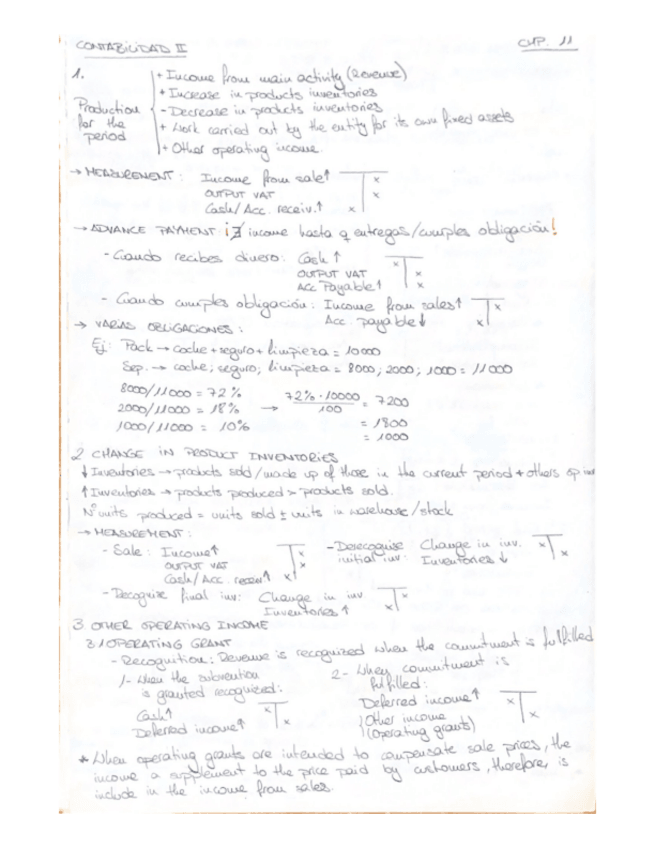 CONTABILIDAD II CHP. 11
1.
Production for the period
+ Income from main activity (Revenue)
+ Increase in products inventories
- Decrease in products inventories
+ Work carried out by the entity for its own fixed assets
+ Other operating income.
→ MEASUREMENT: Income from sale↑
OUTPUT VAT
Cash/Acc. receiv.↑
→ ADVANCE PAYMENT: ¡∄ income hasta q entregas/cumples obligación!
- Cuando recibes dinero: Cash ↑
OUTPUT VAT
Acc Payable↑
- Cuando cumples obligación: Income from sales↑
Acc. payable↓
→ VARIAS OBLIGACIONES:
Ej: Pack → coche + seguro + limpieza = 10000
Sep. → coche; seguro; limpieza = 8000; 2000; 1000 = 11000
8000/11000 = 72% → 72%·10000/100 = 7200
2000/11000 = 18% = 1800
1000/11000 = 10% = 1000
2 CHANGE IN PRODUCT INVENTORIES
↓Inventories → products sold/made up of those in the current period + others
↑Inventories → products produced > products sold.
Nº units produced = units sold ± units in warehouse/stock
→ MEASUREMENT:
- Sale: Income↑
OUTPUT VAT
Cash/Acc. receiv↑
- Derecognise initial inv: Change in inv.
Inventories ↓
- Recognize final inv: Change in inv
Inventories ↑
3 OTHER OPERATING INCOME
3.1 OPERATING GRANT
- Recognition: Revenue is recognized when the commitment is fulfilled
1- When the subvention is granted recognized:
Cash↑
Deferred income↑
2- When commitment is fulfilled:
Deferred income↑
Other income (Operating grants)
* When operating grants are intended to compensate sale prices, the
income a supplement to the price paid by customers, therefore is
include in the income from sales.